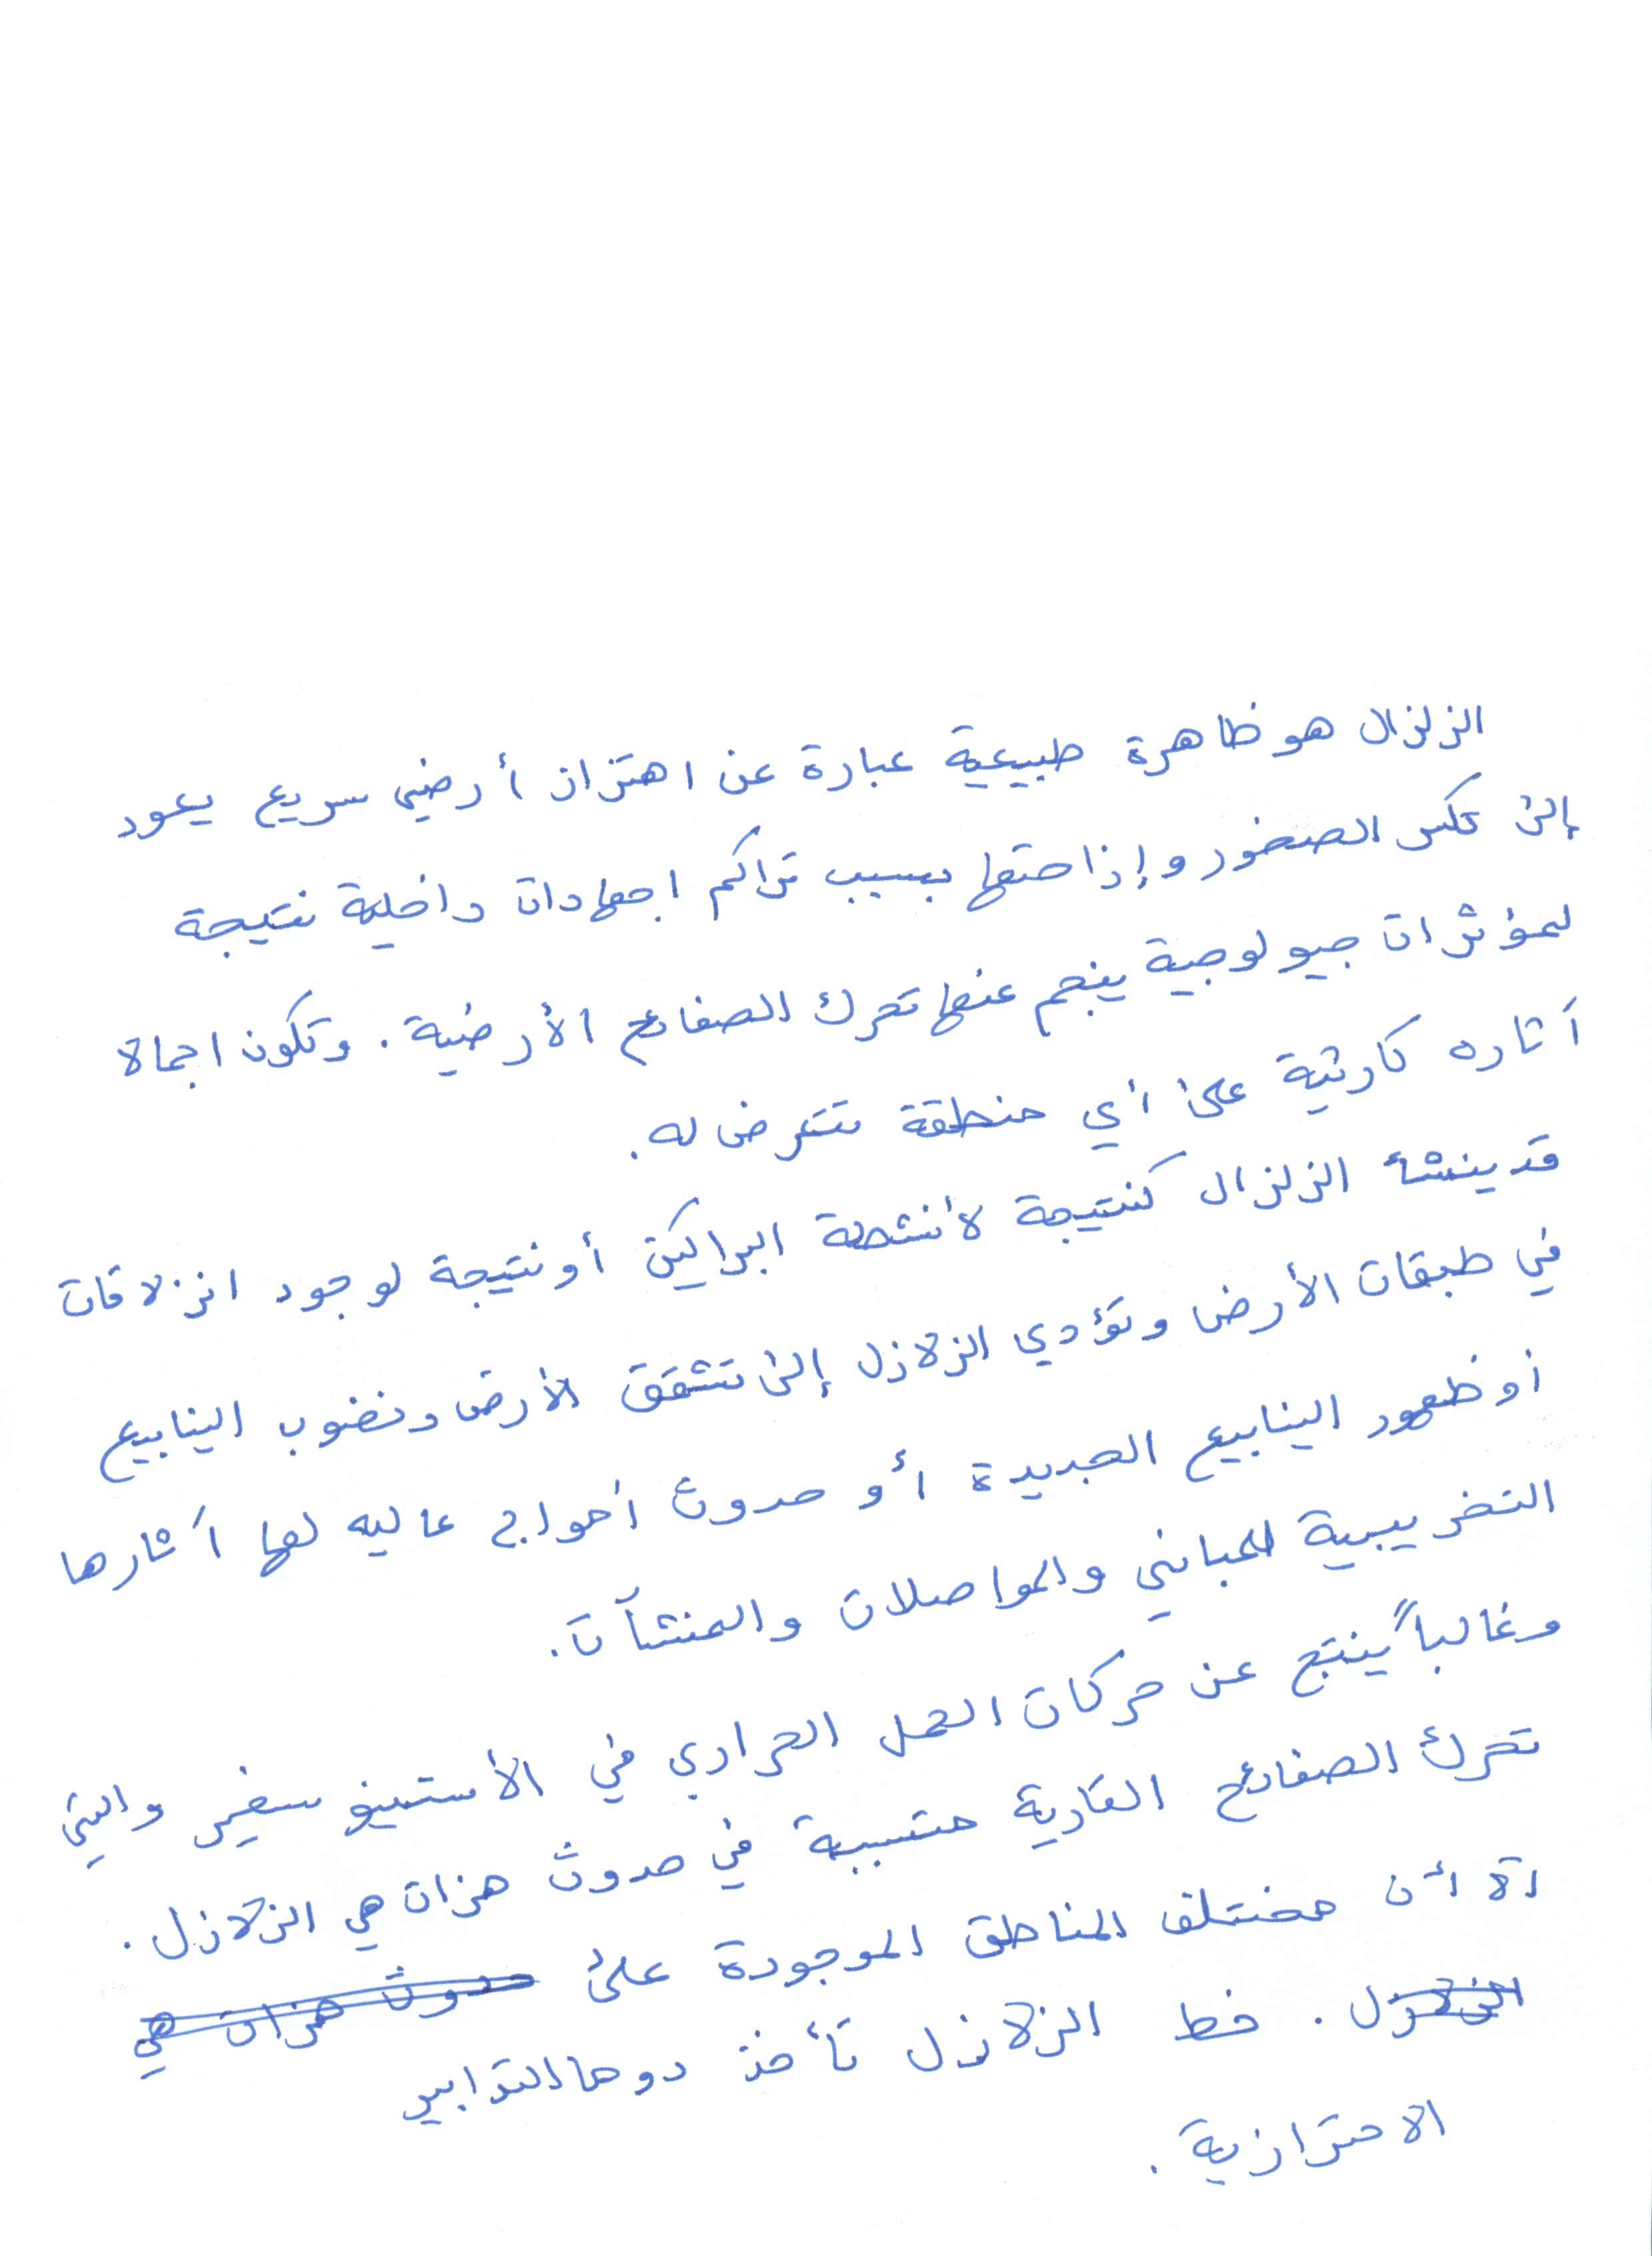 الزلزال هو ظاهرة طبيعية عبارة عن اهتزاز أرضي سريع يعود
إلى تكس الصخور وإزاحتها بسبب تراكم اجهادات داخلية نتيجة
لمؤثرات جيولوجية ينجم عنها تحرك الصفائح الأرضية. وتكون اجمالا
آثاره كارثية على أي منطقة تتعرض له.
قد ينشأ الزلزال كنتيجة لأنشطة البراكين أو نتيجة لوجود انزلاقات
في طبقات الأرض وتؤدي الزلازل إلى تشقق الأرض ونضوب الينابيع
أو ظهور الينابيع الجديدة أو حدوث أمواج عاليه لها آثارها
التخريبية للمباني والمواصلات والمنشآت.
وغالباً ينتج عن حركات الحمل الحراري في الأستينوسفير والتي
تحرك الصفائح القارية متسببة في حدوث هزات هي الزلازل.
الا أن مختلف المناطق الموجودة على حدوث هزات هي
الزلازل. خط الزلازل تأخذ دوما التدابير
الاحترازية.